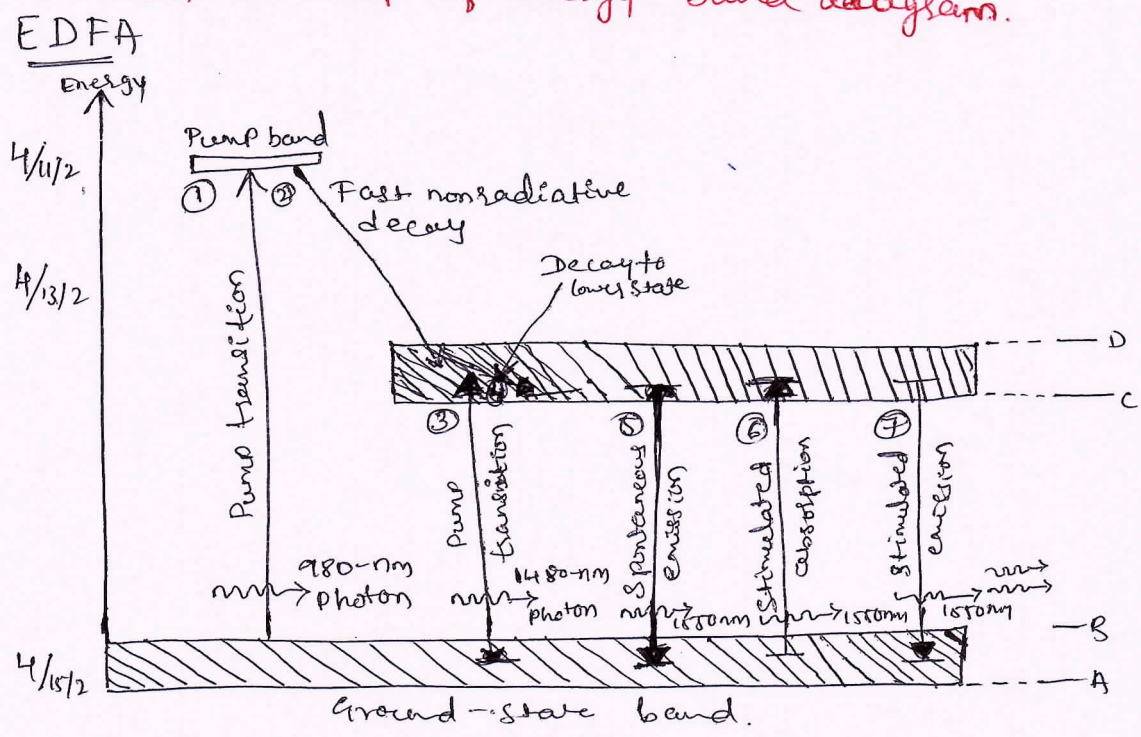 energy band diagram.
EDFA
Energy
4/11/2
Pump band
① ②
Fast nonradiative
decay
4/13/2
Decay to
lower state
Pump transition
D
C
③ ④ ⑤ ⑥ ⑦
Pump transition
Spontaneous
emission
Stimulated
absorption
Stimulated
emission
980-nm
photon
1480-nm
photon
1550nm
1550nm
1550nm
B
4/15/2
A
Ground-state band.